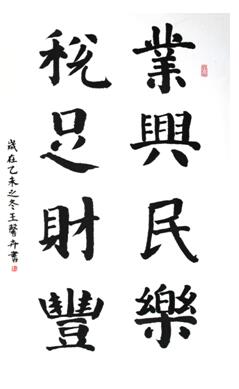 業興民樂
稅足財豐
歲在乙未之冬王醫卉書